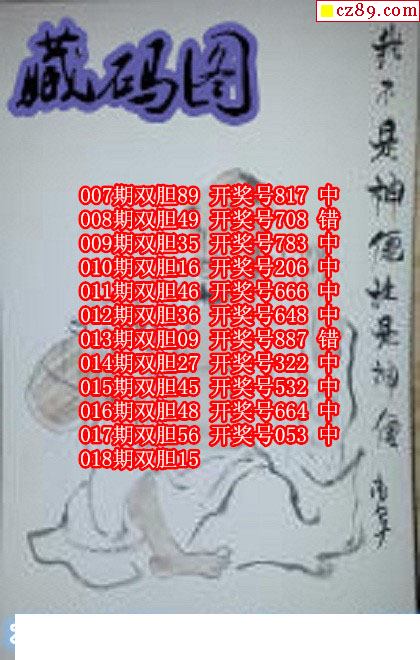 cz89.com
藏码图
我不是神但也是神僊
007期双胆89 开奖号817 中
008期双胆49 开奖号708 错
009期双胆35 开奖号783 中
010期双胆16 开奖号206 中
011期双胆46 开奖号666 中
012期双胆36 开奖号648 中
013期双胆09 开奖号887 错
014期双胆27 开奖号322 中
015期双胆45 开奖号532 中
016期双胆48 开奖号664 中
017期双胆56 开奖号053 中
018期双胆15